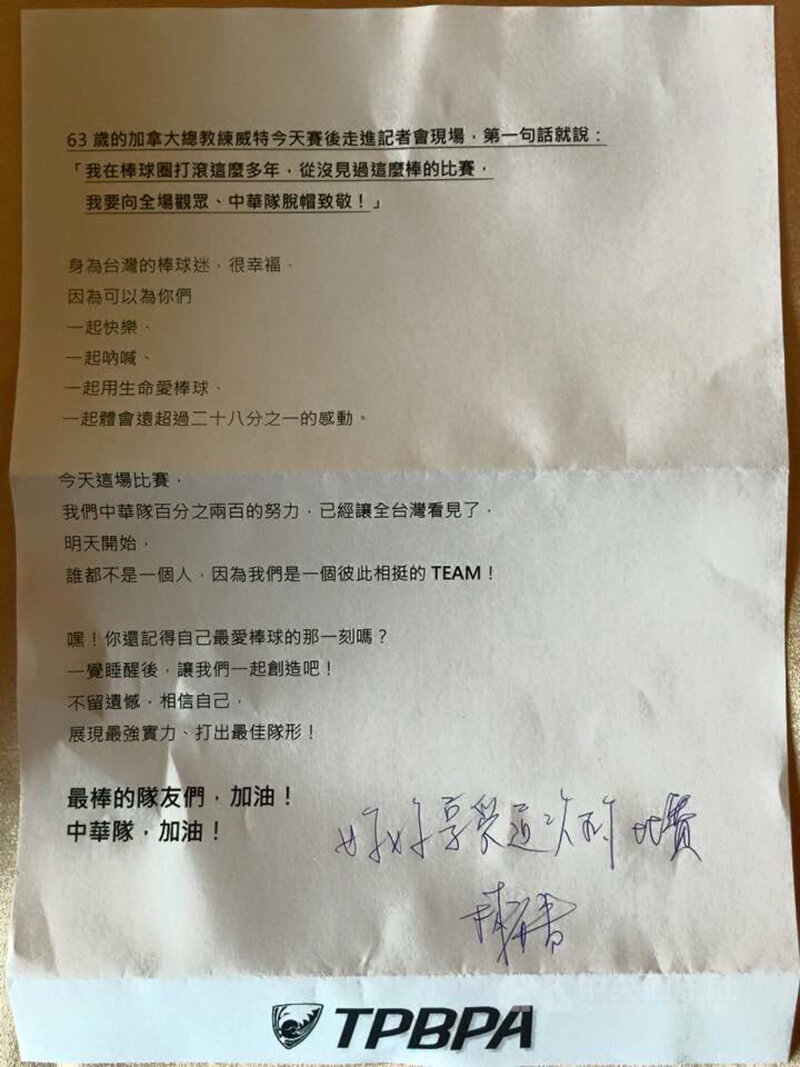 63 歲的加拿大總教練威特今天賽後走進記者會現場，第一句話就說：
「我在棒球圈打滾這麼多年，從沒見過這麼棒的比賽，
我要向全場觀眾、中華隊脫帽致敬！」
身為台灣的棒球迷，很幸福。
因為可以為你們
一起快樂、
一起吶喊、
一起用生命愛棒球、
一起體會遠超過二十八分之一的感動。
今天這場比賽，
我們中華隊百分之兩百的努力，已經讓全台灣看見了，
明天開始，
誰都不是一個人，因為我們是一個彼此相挺的 TEAM！
嘿！你還記得自己最愛棒球的那一刻嗎？
一覺睡醒後，讓我們一起創造吧！
不留遺憾，相信自己，
展現最強實力、打出最佳隊形！
最棒的隊友們，加油！
中華隊，加油！
好好享受這次的比賽
TPBPA